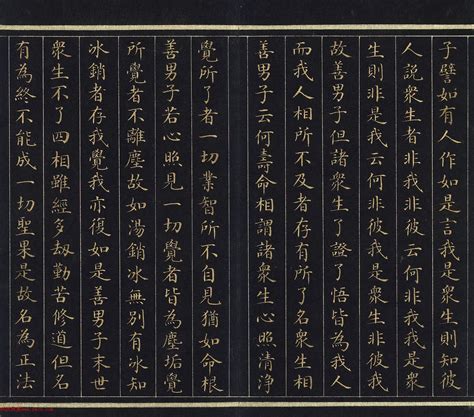 子譬如有人作如是言我是衆生則知彼
人說衆生者非我非彼云何非我我是衆
生則非是我云何非彼我是衆生非彼我
故善男子但諸衆生了證了悟皆為我人
而我人相所不及者存有所了名衆生相
善男子云何壽命相謂諸衆生心照清淨
覺所了者一切業智所不自見猶如命根
善男子若心照見一切覺者皆為塵垢覺
所覺者不離塵故如湯銷冰無別有冰知
冰銷者存我覺我亦復如是善男子末世
衆生不了四相雖經多劫勤苦修道但名
有為終不能成一切聖果是故名為正法